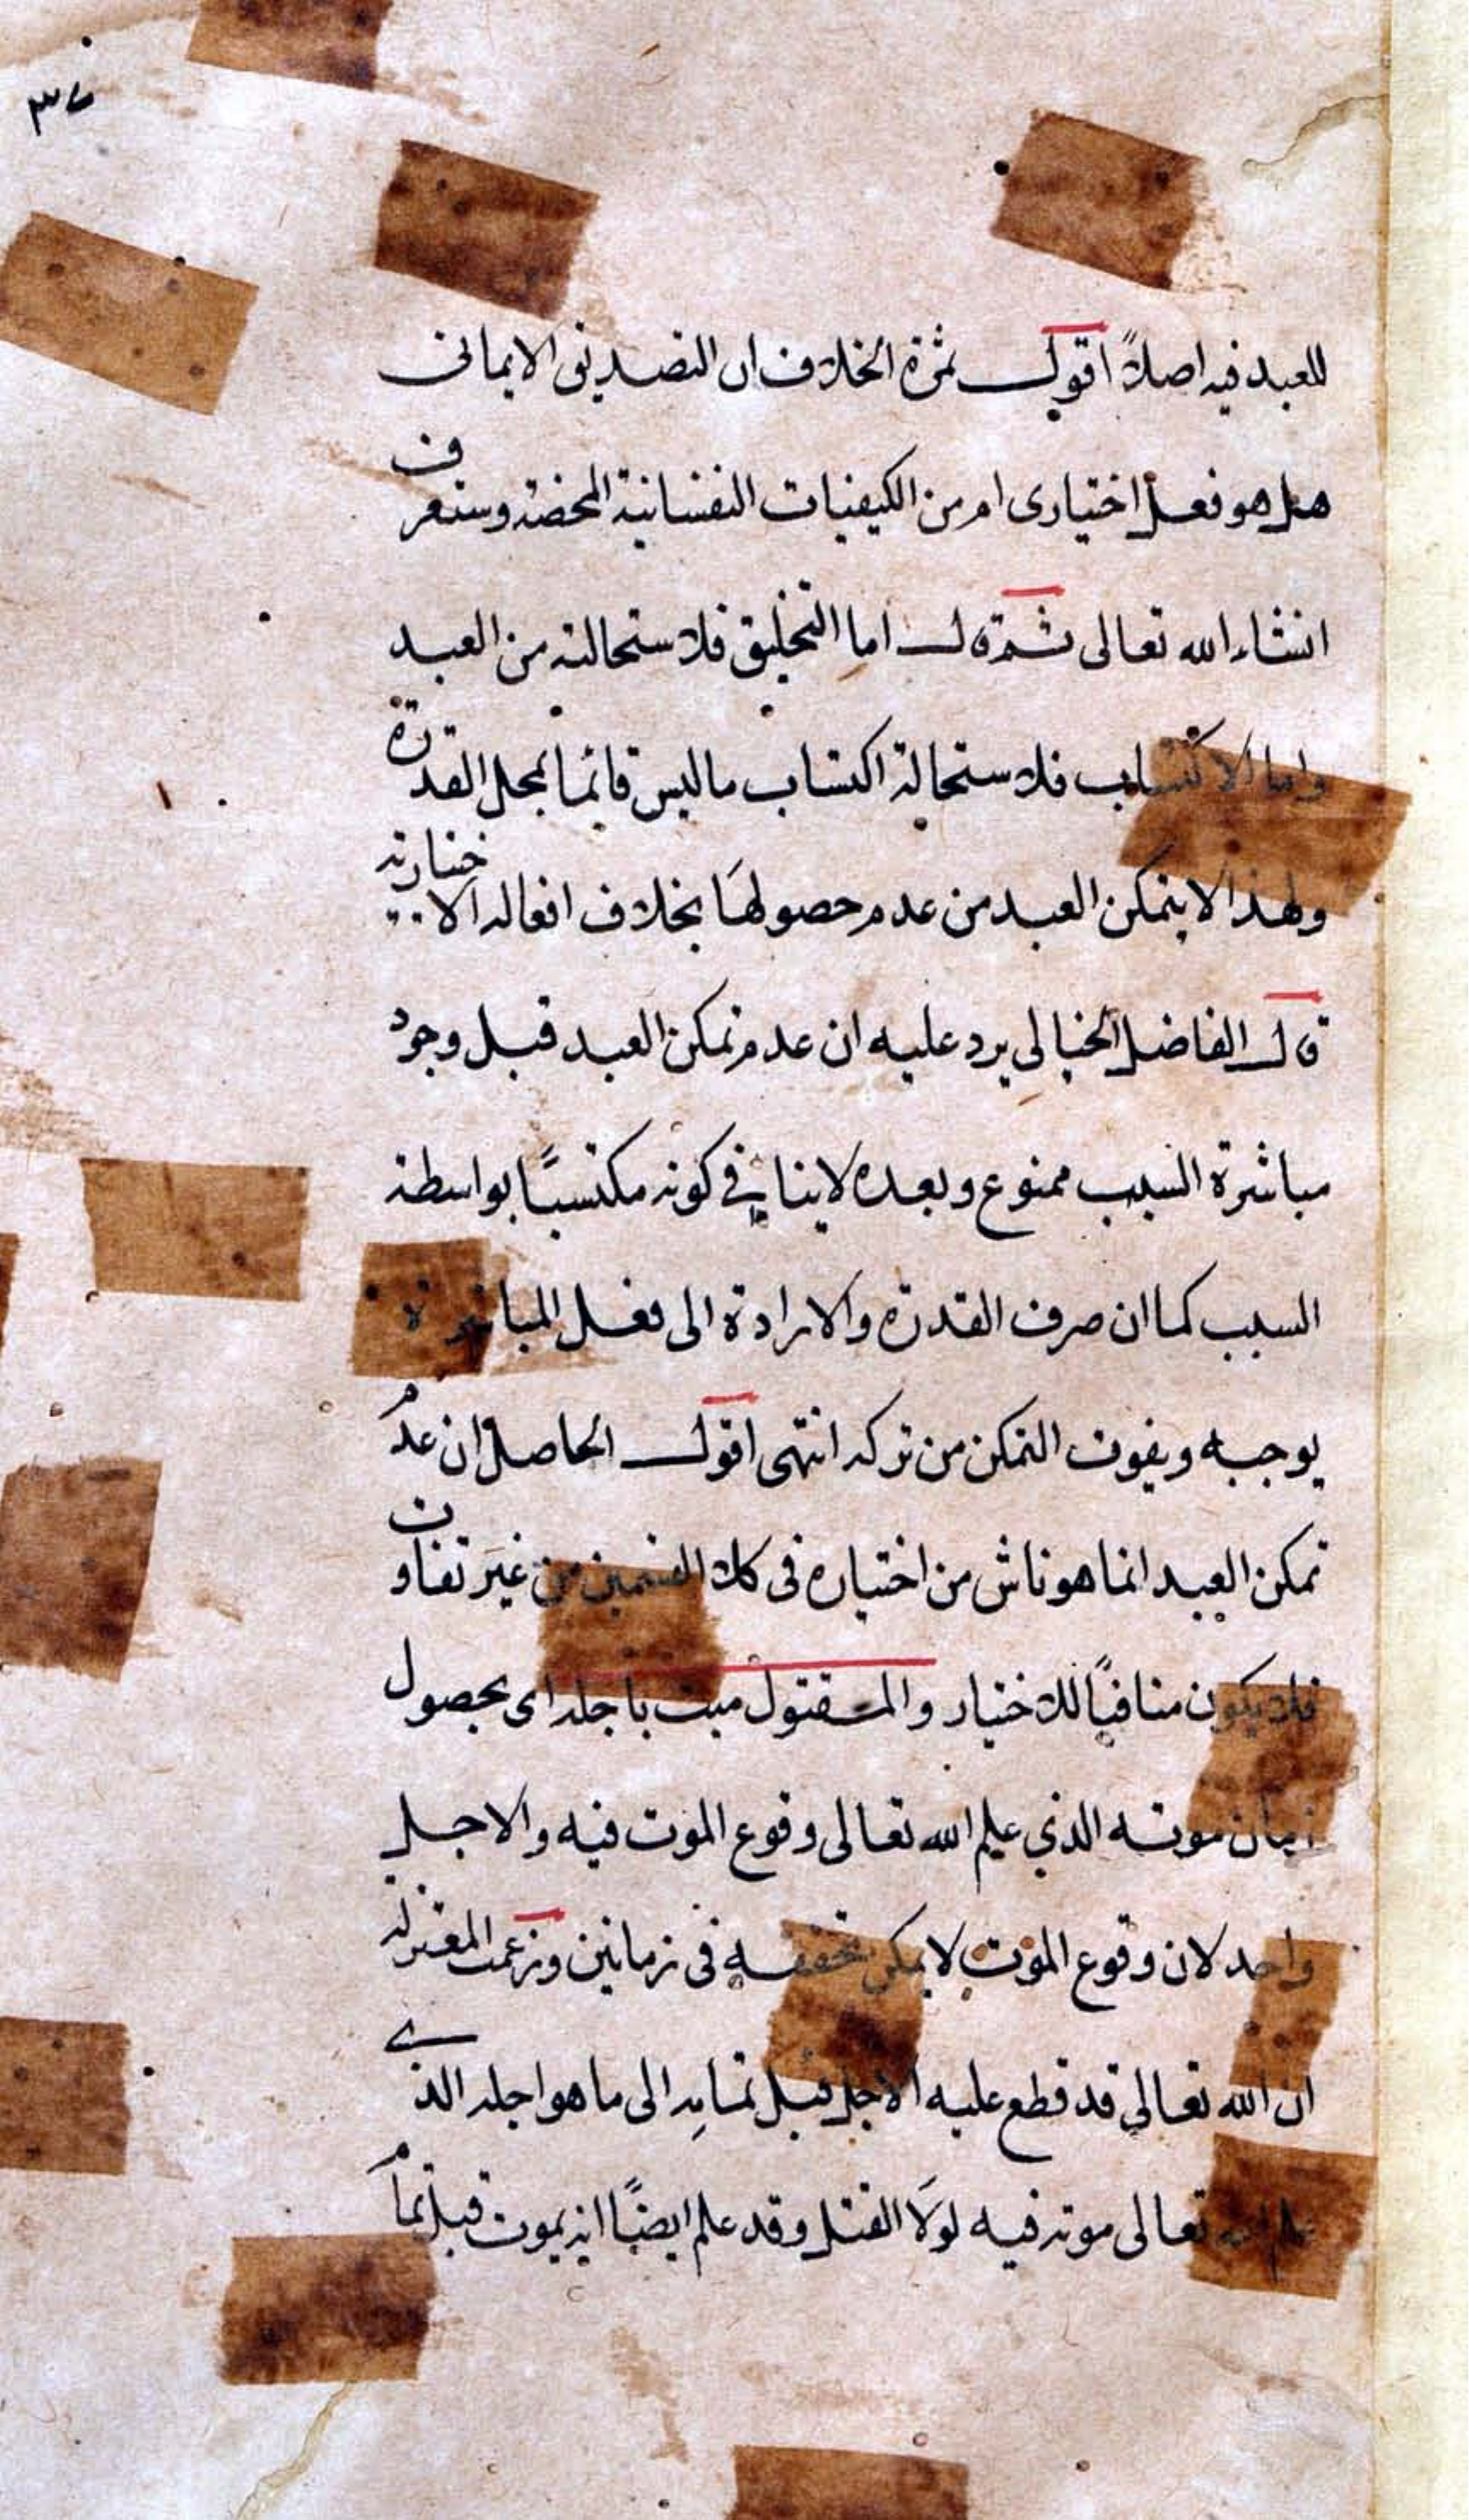 ٣٧
للعبد فيه اصلاً اقول ثمرة الخلاف ان التصديق الايمانى
هل هو فعل اختيارى ام من الكيفيات النفسانية المحضة وستعرف
انشاء الله تعالى ثم قال اما التخليق فلاستحالته من العبد
واما الاكتساب فلاستحالة اكتساب ما ليس قائما بمحل القدرة
ولهذا لا يتمكن العبد من عدم حصولها بخلاف افعاله الاختيارية
قال الفاضل الخيالى يرد عليه ان عدم تمكن العبد قبل وجود
مباشرة السبب ممنوع وبعده لا ينافي كونه مكتسبًا بواسطة
السبب كما ان صرف القدرة والارادة الى فعل المباشرة
يوجبه ويفوت التمكن من تركه انتهى اقول الحاصل ان عدم
تمكن العبد انما هو ناش من اختياره فى كلا القسمين من غير تفاوت
فلا يكون منافيًا للاختيار والمقتول ميت باجله اى بحصول
زمان موته الذي علم الله تعالى وقوع الموت فيه والاجل
واحد لان وقوع الموت لا يمكن تحققه فى زمانين وزعمت المعتزلة
ان الله تعالى قد قطع عليه الاجل قبل تمامه الى ما هو اجله الذي
علم الله تعالى موته فيه لولا القتل وقد علم ايضًا انه يموت قبل تمام